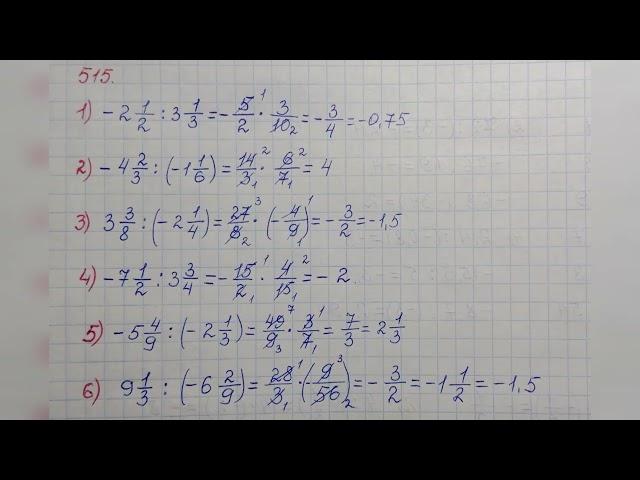 515.
1) - 2 1/2 : 3 1/3 = - 5/2 · 3/10 = - 3/4 = -0,75
2) - 4 2/3 : (-1 1/6) = 14/3 · 6/7 = 4
3) 3 3/8 : (-2 1/4) = 27/8 · (- 4/9) = - 3/2 = -1,5
4) - 7 1/2 : 3 3/4 = - 15/2 · 4/15 = - 2
5) - 5 4/9 : (- 2 1/3) = 49/9 · 3/7 = 7/3 = 2 1/3
6) 9 1/3 : (-6 2/9) = 28/3 · (- 9/56) = - 3/2 = -1 1/2 = -1,5